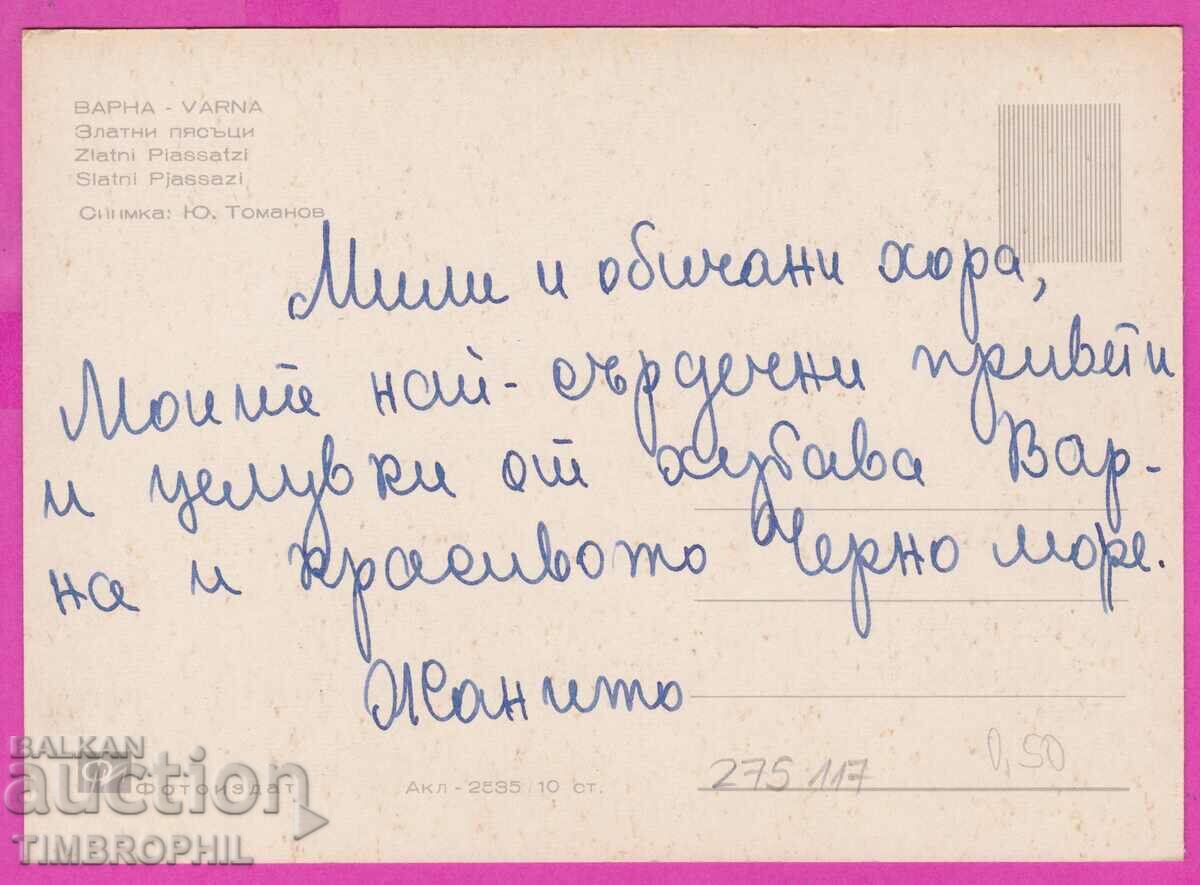 ВАРНА - VARNA
Златни пясъци
Zlatni Piassatzi
Slatni Pjassazi
Снимка: Ю. Томанов
Мили и обичани хора,
Моите най-сърдечни привети
и целувки от хубава Вар-
на и красивото Черно море.
Жанито
Фотоиздат
Акл - 2535/10 ст.
275117
0,50
BALKAN
auction
TIMBROPHIL